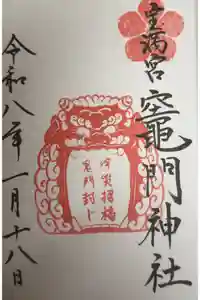 宝満宮
竈門神社
災招福
鬼門封じ
令和八年一月十八日